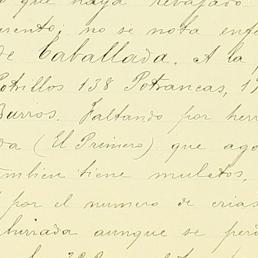 que haya rebajado
no se nota enf
de Caballada. A la
Potrillos 138 Potrancas, 1
Burros. Faltando por herr
da (El Primero) que ag
mbien tiene muletos,
por el numero de crias
burrada aunque se per